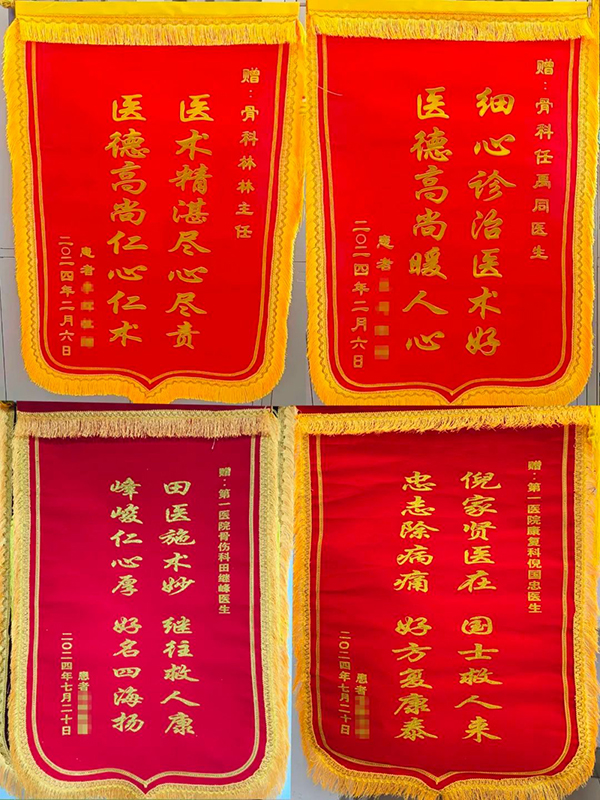 赠：骨科林林主任
医术精湛尽心尽责
医德高尚仁心仁术
患者
二〇二四年二月六日
赠：骨科任禹同医生
细心诊治医术好
医德高尚暖人心
患者
二〇二四年二月六日
赠：第一医院骨伤科田继峰医生
田医施术妙 继往救人康
峰峻仁心厚 好名四海扬
患者
二〇二四年七月二十日
赠：第一医院康复科倪国忠医生
倪家贤医在 国士救人来
忠志除病痛 好方复康泰
患者
二〇二四年七月二十日